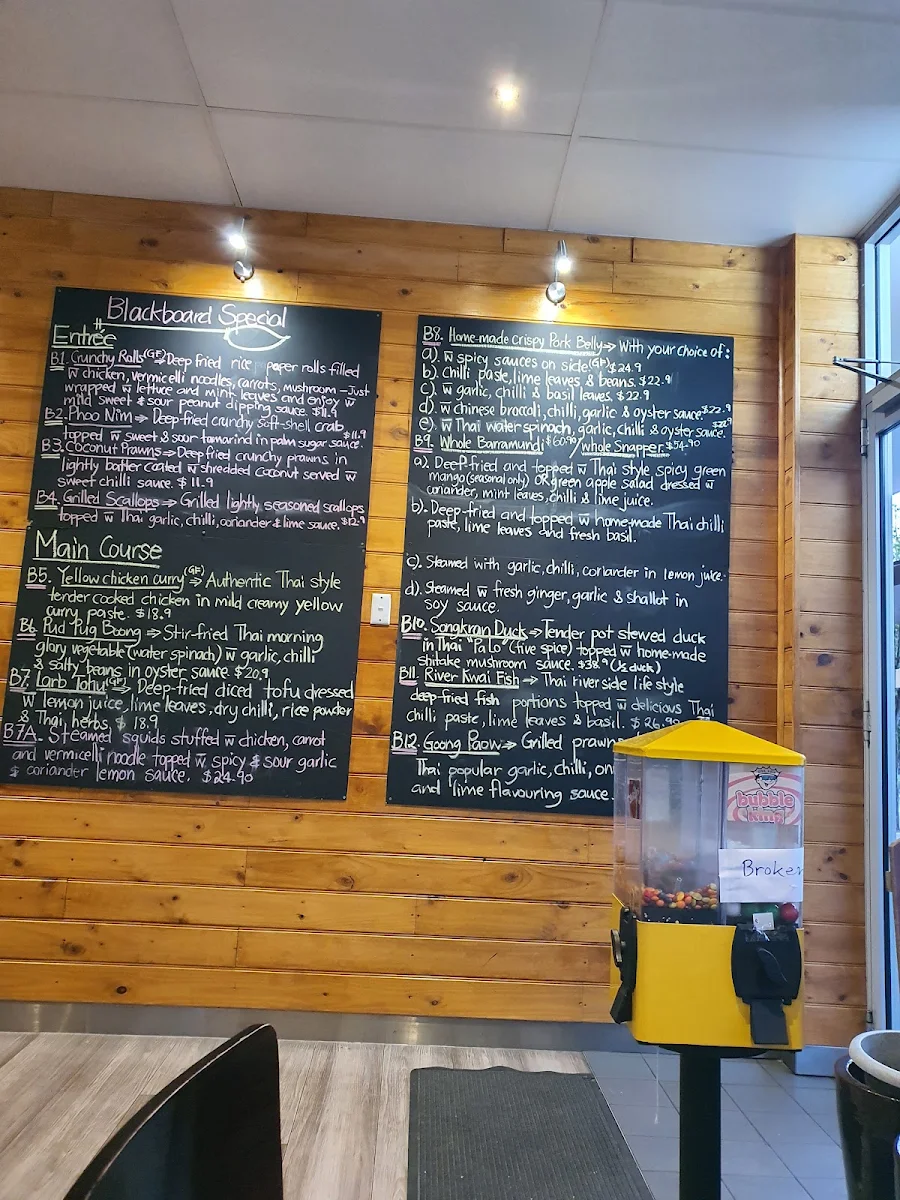 Blackboard Special
Entrée
B1. Crunchy Rolls (GF) ⇒ Deep fried rice paper rolls filled
w̄ chicken, vermicelli noodles, carrots, mushroom - Just
wrapped w̄ lettuce and mint leaves and enjoy w̄
mild sweet & sour peanut dipping sauce. $11.9
B2. Phoo Nim ⇒ Deep-fried crunchy soft-shell crab
topped w̄ sweet & sour tamarind in palm sugar sauce. $11.9
B3. Coconut Prawns ⇒ Deep fried crunchy prawns in
lightly batter coated w̄ shredded coconut served w̄
sweet chilli sauce. $11.9
B4. Grilled Scallops ⇒ Grilled lightly seasoned scallops
topped w̄ Thai garlic, chilli, coriander & lime sauce. $12.9
Main Course
B5. Yellow chicken curry (GF) ⇒ Authentic Thai style
tender cooked chicken in mild creamy yellow
curry paste. $18.9
B6. Pud Pug Boong ⇒ Stir-fried Thai morning
glory vegetable (water spinach) w̄ garlic, chilli
& salty beans in oyster sauce. $20.9
B7. Larb Tofu (GF) ⇒ Deep-fried diced tofu dressed
w̄ lemon juice, lime leaves, dry chilli, rice powder
& Thai herbs. $18.9
B7A. Steamed squids stuffed w̄ chicken, carrot
and vermicelli noodle topped w̄ spicy & sour garlic
& coriander lemon sauce. $24.90
B8. Home-made Crispy Pork Belly ⇒ With your choice of:
a). w̄ spicy sauces on side (GF) $24.9
b). Chilli paste, lime leaves & beans. $22.9
c). w̄ garlic, chilli & basil leaves. $22.9
d). w̄ chinese broccoli, chilli, garlic & oyster sauce $22.9
e). w̄ Thai water spinach, garlic, chilli & oyster sauce. $22.9
B9. Whole Barramundi $60.90 / whole Snapper $54.90
a). Deep-fried and topped w̄ Thai style spicy green
mango (seasonal only) OR green apple salad dressed w̄
coriander, mint leaves, chilli & lime juice.
b). Deep-fried and topped w̄ home-made Thai chilli
paste, lime leaves and fresh basil.
c). Steamed with garlic, chilli, coriander in lemon juice.
d). Steamed w̄ fresh ginger, garlic & shallot in
soy sauce.
B10. Songkran Duck ⇒ Tender pot stewed duck
in Thai "Pa Lo" (five spice) topped w̄ home-made
shitake mushroom sauce. $38.9 (½ duck)
B11. River Kwai Fish ⇒ Thai river side life style
deep-fried fish portions topped w̄ delicious Thai
chilli paste, lime leaves & basil. $26.90
B12. Goong Paow ⇒ Grilled prawn
Thai popular garlic, chilli, on
and lime flavouring sauce.
bubble
king
Broken